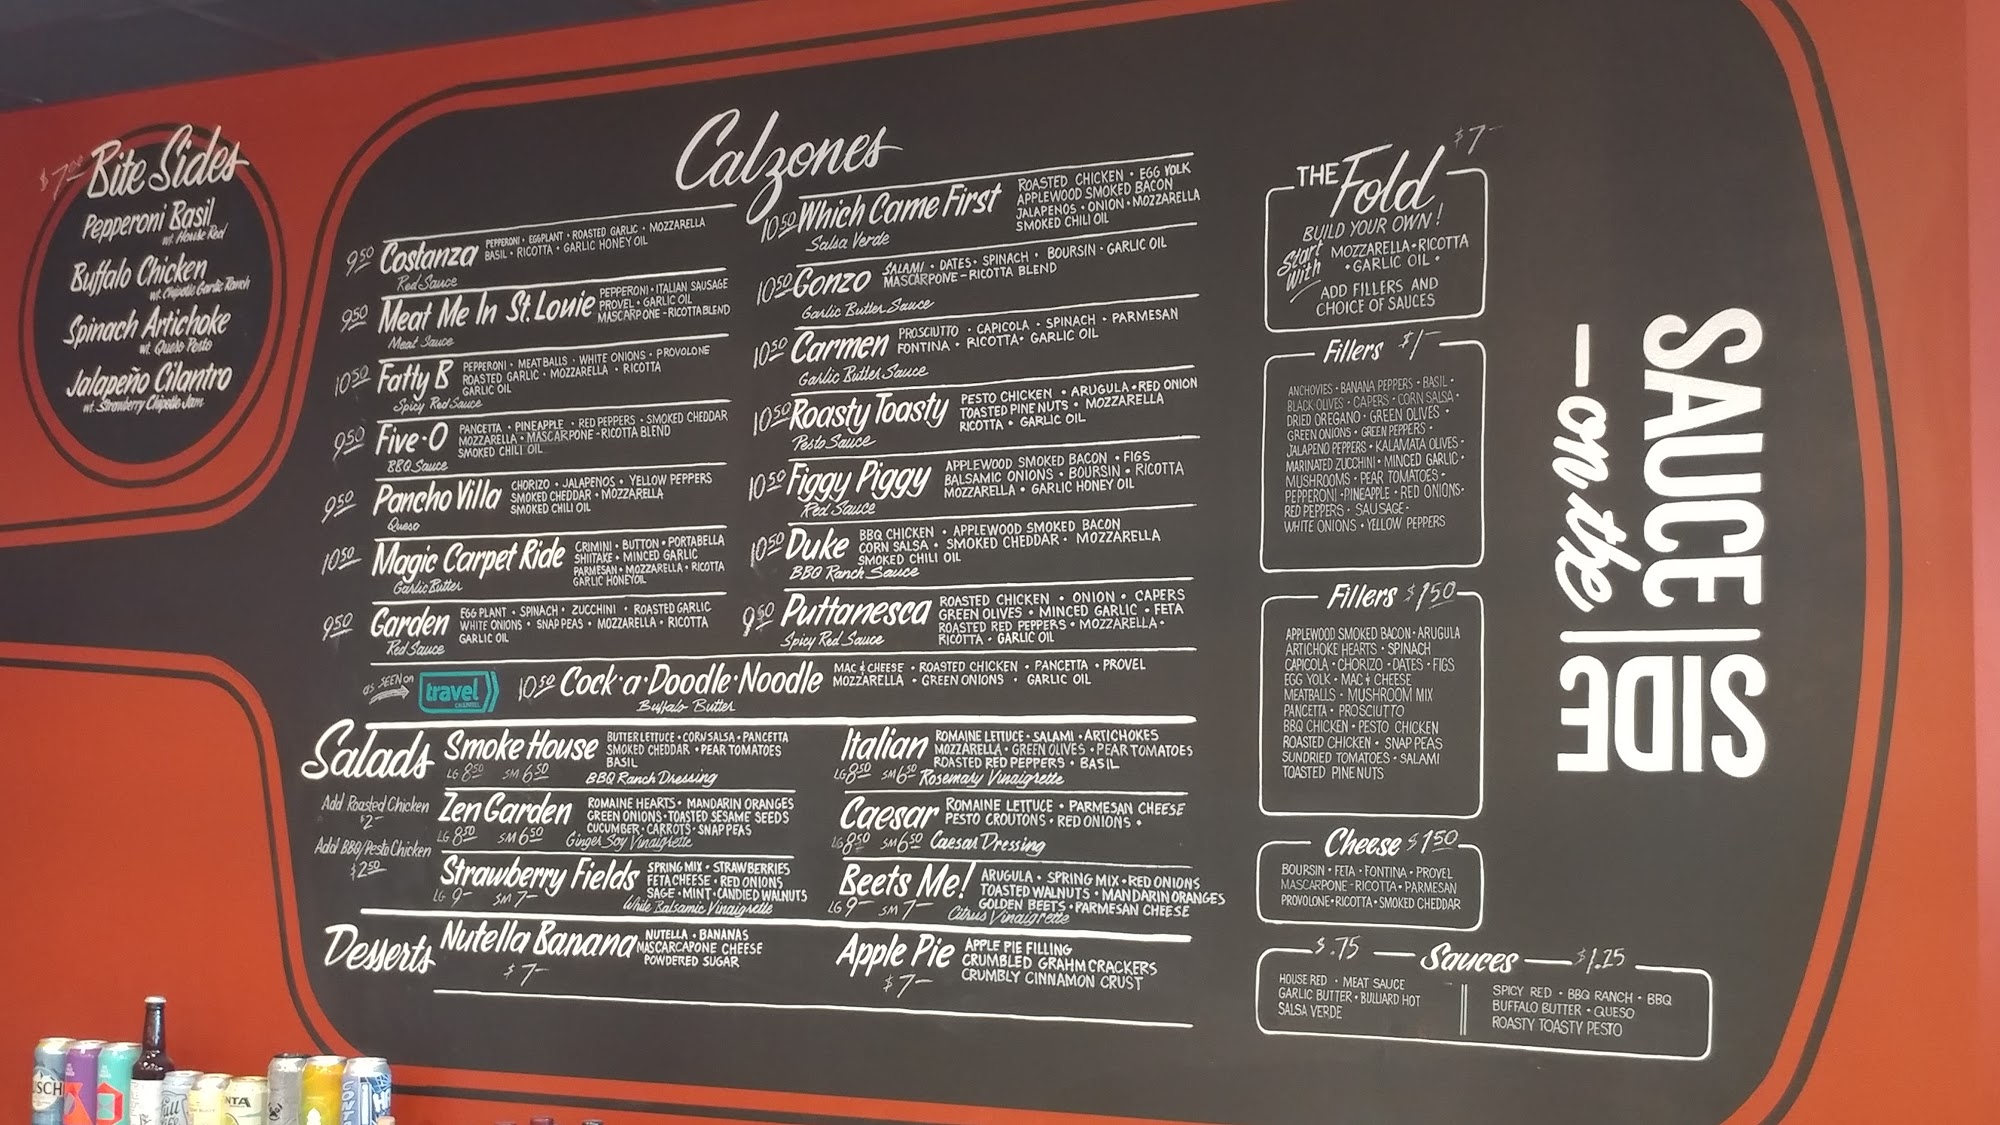 $7.00 Bite Sides
Pepperoni Basil
wt. House Red
Buffalo Chicken
wt. Chipotle Garlic Ranch
Spinach Artichoke
wt. Queso Pesto
Jalapeño Cilantro
wt. Strawberry Chipotle Jam
Calzones
9.50 Costanza PEPPERONI · EGGPLANT · ROASTED GARLIC · MOZZARELLA
BASIL · RICOTTA · GARLIC HONEY OIL
Red Sauce
9.50 Meat Me In St. Louie PEPPERONI · ITALIAN SAUSAGE
PROVEL · GARLIC OIL
MASCARPONE-RICOTTA BLEND
Meat Sauce
10.50 Fatty B PEPPERONI · MEATBALLS · WHITE ONIONS · PROVOLONE
ROASTED GARLIC · MOZZARELLA · RICOTTA
GARLIC OIL
Spicy Red Sauce
9.50 Five-O PANCETTA · PINEAPPLE · RED PEPPERS · SMOKED CHEDDAR
MOZZARELLA · MASCARPONE-RICOTTA BLEND
SMOKED CHILI OIL
BBQ Sauce
9.50 Pancho Villa CHORIZO · JALAPENOS · YELLOW PEPPERS
SMOKED CHEDDAR · MOZZARELLA
SMOKED CHILI OIL
Queso
10.50 Magic Carpet Ride CRIMINI · BUTTON · PORTABELLA
SHIITAKE · MINCED GARLIC
PARMESAN · MOZZARELLA · RICOTTA
GARLIC HONEY OIL
Garlic Butter
9.50 Garden EGGPLANT · SPINACH · ZUCCHINI · ROASTED GARLIC
WHITE ONIONS · SNAP PEAS · MOZZARELLA · RICOTTA
GARLIC OIL
Red Sauce
10.50 Which Came First ROASTED CHICKEN · EGG YOLK
APPLEWOOD SMOKED BACON
JALAPENOS · ONION · MOZZARELLA
SMOKED CHILI OIL
Salsa Verde
10.50 Gonzo SALAMI · DATES · SPINACH · BOURSIN · GARLIC OIL
MASCARPONE-RICOTTA BLEND
Garlic Butter Sauce
10.50 Carmen PROSCIUTTO · CAPICOLA · SPINACH · PARMESAN
FONTINA · RICOTTA · GARLIC OIL
Garlic Butter Sauce
10.50 Roasty Toasty PESTO CHICKEN · ARUGULA · RED ONION
TOASTED PINE NUTS · MOZZARELLA
RICOTTA · GARLIC OIL
Pesto Sauce
10.50 Figgy Piggy APPLEWOOD SMOKED BACON · FIGS
BALSAMIC ONIONS · BOURSIN · RICOTTA
MOZZARELLA · GARLIC HONEY OIL
Red Sauce
10.50 Duke BBQ CHICKEN · APPLEWOOD SMOKED BACON
CORN SALSA · SMOKED CHEDDAR · MOZZARELLA
SMOKED CHILI OIL
BBQ Ranch Sauce
9.50 Puttanesca ROASTED CHICKEN · ONION · CAPERS
GREEN OLIVES · MINCED GARLIC · FETA
ROASTED RED PEPPERS · MOZZARELLA ·
RICOTTA · GARLIC OIL
Spicy Red Sauce
as SEEN on travel CHANNEL
10.50 Cock·a·Doodle·Noodle MAC & CHEESE · ROASTED CHICKEN · PANCETTA · PROVEL
MOZZARELLA · GREEN ONIONS · GARLIC OIL
Buffalo Butter
Salads
Add Roasted Chicken
$2-
Add BBQ/Pesto Chicken
$2.50
Smoke House BUTTER LETTUCE · CORN SALSA · PANCETTA
SMOKED CHEDDAR · PEAR TOMATOES
BASIL
LG 8.50 SM 6.50 BBQ Ranch Dressing
Zen Garden ROMAINE HEARTS · MANDARIN ORANGES
GREEN ONIONS · TOASTED SESAME SEEDS
CUCUMBER · CARROTS · SNAP PEAS
LG 8.50 SM 6.50 Ginger Soy Vinaigrette
Strawberry Fields SPRING MIX · STRAWBERRIES
FETA CHEESE · RED ONIONS
SAGE · MINT · CANDIED WALNUTS
LG 9- SM 7- White Balsamic Vinaigrette
Italian ROMAINE LETTUCE · SALAMI · ARTICHOKES
MOZZARELLA · GREEN OLIVES · PEAR TOMATOES
ROASTED RED PEPPERS · BASIL
LG 8.50 SM 6.50 Rosemary Vinaigrette
Caesar ROMAINE LETTUCE · PARMESAN CHEESE
PESTO CROUTONS · RED ONIONS ·
LG 8.50 SM 6.50 Caesar Dressing
Beets Me! ARUGULA · SPRING MIX · RED ONIONS
TOASTED WALNUTS · MANDARIN ORANGES
GOLDEN BEETS · PARMESAN CHEESE
LG 9- SM 7- Citrus Vinaigrette
Desserts
Nutella Banana NUTELLA · BANANAS
MASCARCAPONE CHEESE
POWDERED SUGAR
$7-
Apple Pie APPLE PIE FILLING
CRUMBLED GRAHM CRACKERS
CRUMBLY CINNAMON CRUST
$7-
THE Fold $7-
BUILD YOUR OWN!
Start With MOZZARELLA · RICOTTA
· GARLIC OIL ·
ADD FILLERS AND
CHOICE OF SAUCES
Fillers $1-
ANCHOVIES · BANANA PEPPERS · BASIL ·
BLACK OLIVES · CAPERS · CORN SALSA ·
DRIED OREGANO · GREEN OLIVES ·
GREEN ONIONS · GREEN PEPPERS ·
JALAPENO PEPPERS · KALAMATA OLIVES ·
MARINATED ZUCCHINI · MINCED GARLIC ·
MUSHROOMS · PEAR TOMATOES ·
PEPPERONI · PINEAPPLE · RED ONIONS ·
RED PEPPERS · SAUSAGE ·
WHITE ONIONS · YELLOW PEPPERS
Fillers $1.50
APPLEWOOD SMOKED BACON · ARUGULA
ARTICHOKE HEARTS · SPINACH
CAPICOLA · CHORIZO · DATES · FIGS
EGG YOLK · MAC & CHEESE
MEATBALLS · MUSHROOM MIX
PANCETTA · PROSCIUTTO
BBQ CHICKEN · PESTO CHICKEN
ROASTED CHICKEN · SNAP PEAS
SUNDRIED TOMATOES · SALAMI
TOASTED PINE NUTS
Cheese $1.50
BOURSIN · FETA · FONTINA · PROVEL
MASCARPONE-RICOTTA · PARMESAN
PROVOLONE · RICOTTA · SMOKED CHEDDAR
$.75 Sauces $1.25
HOUSE RED · MEAT SAUCE
GARLIC BUTTER · BULLIARD HOT
SALSA VERDE
SPICY RED · BBQ RANCH · BBQ
BUFFALO BUTTER · QUESO
ROASTY TOASTY PESTO
SAUCE
on the
SIDE